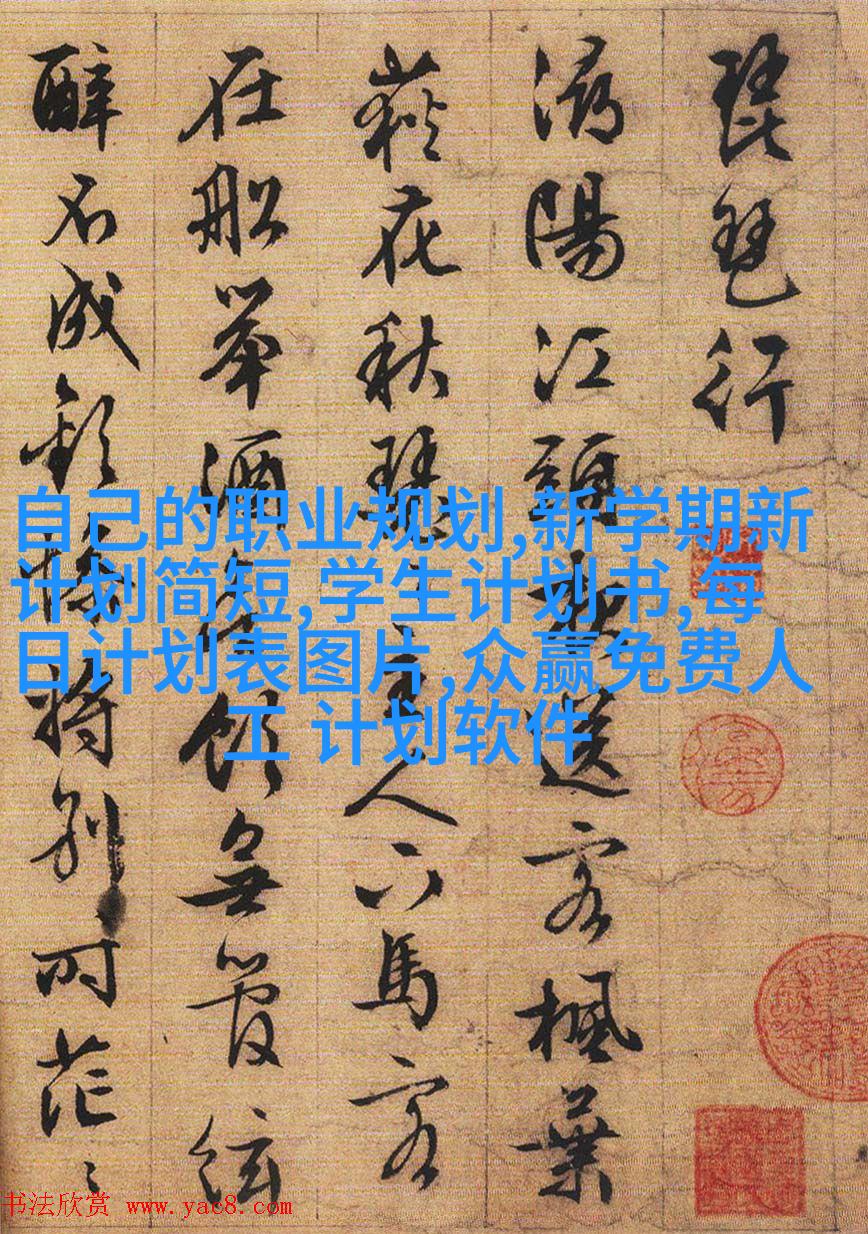 琵琶行
潯陽江頭夜送客楓葉
荻花秋瑟〻主人下馬客
在船舉酒欲飲無管絃
醉不成歡慘將別時茫〻
自己的职业规划,新学期新
计划简短,学生计划书,每
日计划表图片,众赢免费人
工 计划软件
书法欣赏 www.yac8.com